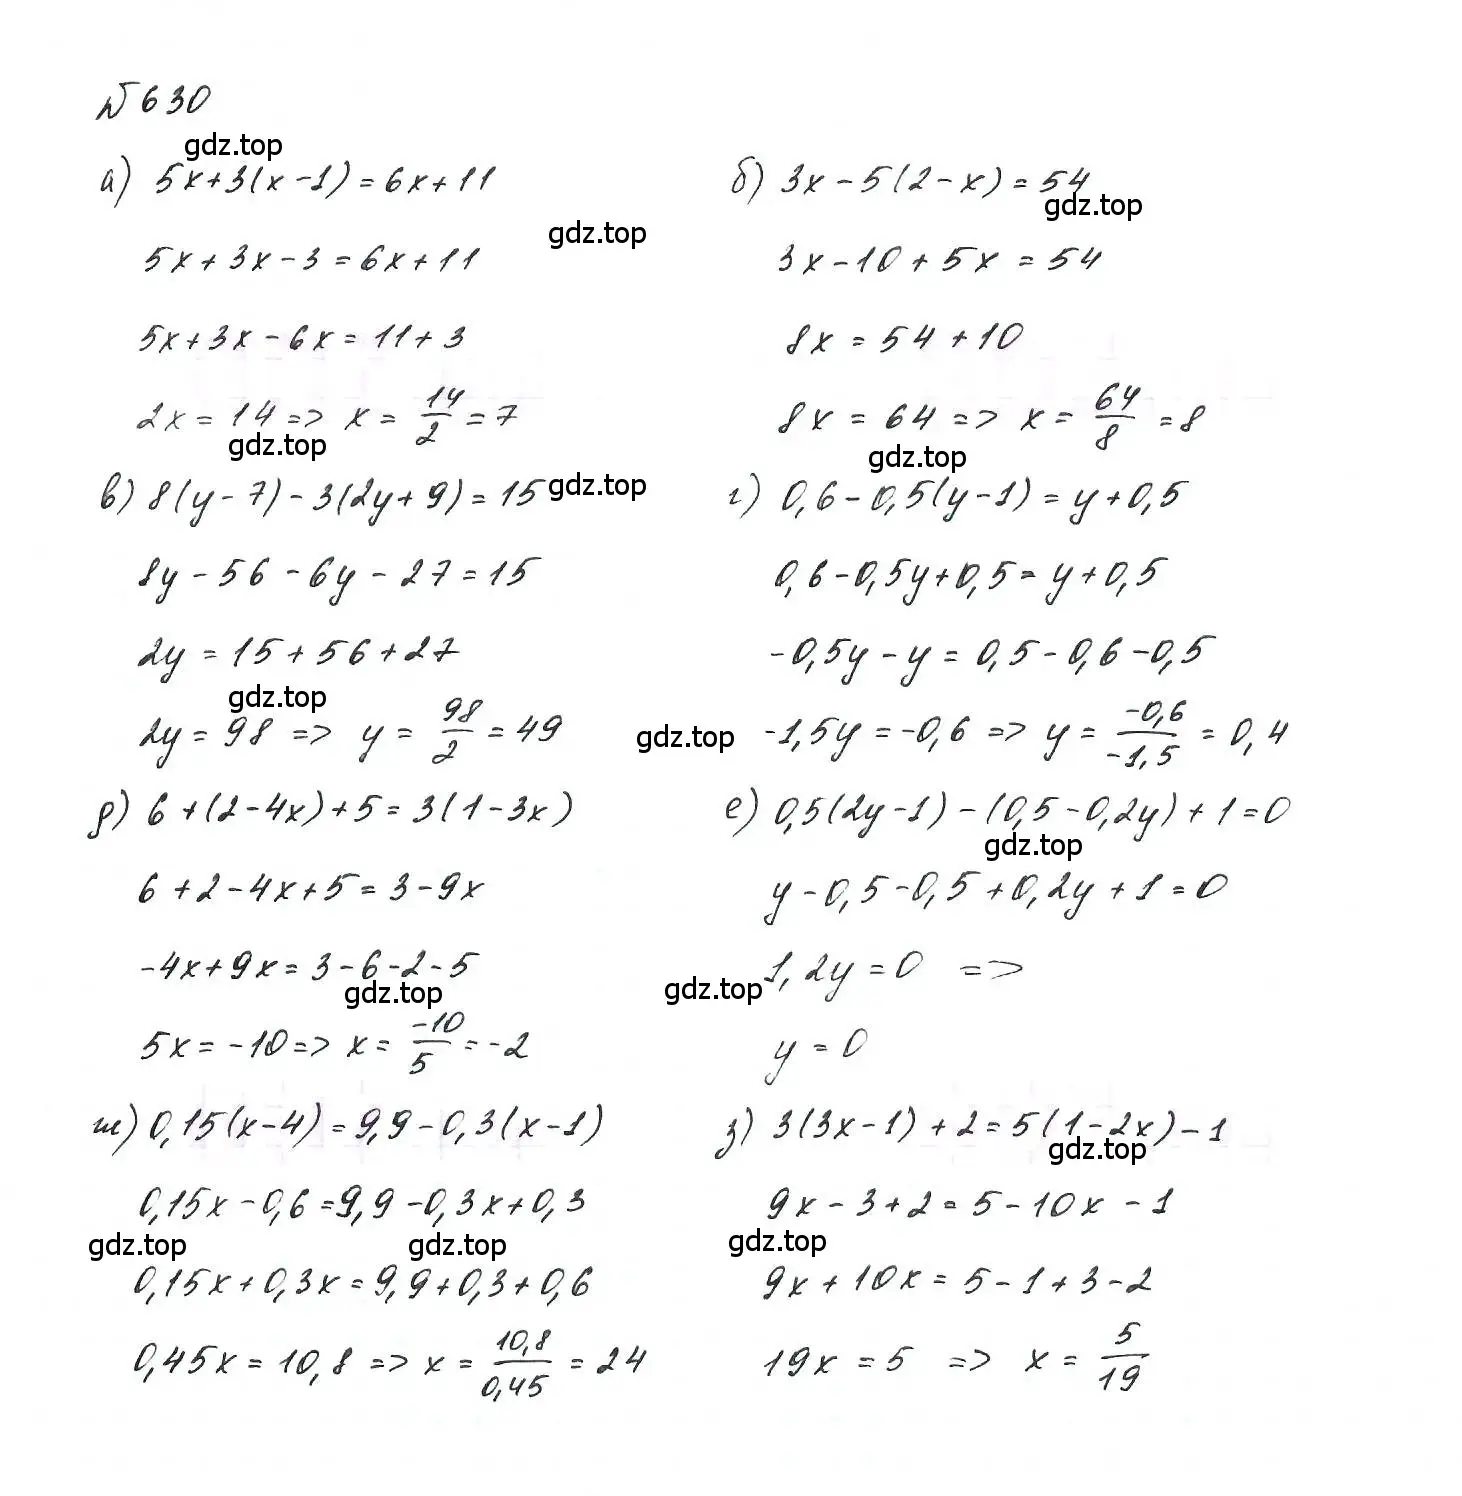 №630
gdz.top
а) 5x+3(x-1)=6x+11
gdz.top
5x+3x-3=6x+11
5x+3x-6x=11+3
2x=14=> x= 14/2 =7
gdz.top
б) 3x-5(2-x)=54
gdz.top
3x-10+5x=54
8x=54+10
8x=64=> x= 64/8 =8
gdz.top
в) 8(y-7)-3(2y+9)=15
gdz.top
8y-56-6y-27=15
2y=15+56+27
gdz.top
2y=98 => y= 98/2 =49
gdz.top
г) 0,6-0,5(y-1)=y+0,5
0,6-0,5y+0,5=y+0,5
-0,5y-y=0,5-0,6-0,5
-1,5y=-0,6 => y= -0,6/-1,5 =0,4
д) 6+(2-4x)+5=3(1-3x)
6+2-4x+5=3-9x
-4x+9x=3-6-2-5
gdz.top
5x=-10=> x= -10/5 =-2
е) 0,5(2y-1)-(0,5-0,2y)+1=0
gdz.top
y-0,5-0,5+0,2y+1=0
gdz.top
1,2y=0 =>
y=0
ж) 0,15(x-4)=9,9-0,3(x-1)
0,15x-0,6=9,9-0,3x+0,3
gdz.top gdz.top
0,15x+0,3x=9,9+0,3+0,6
0,45x=10,8 => x= 10,8/0,45 =24
з) 3(3x-1)+2=5(1-2x)-1
gdz.top
9x-3+2=5-10x-1
gdz.top
9x+10x=5-1+3-2
19x=5 => x= 5/19